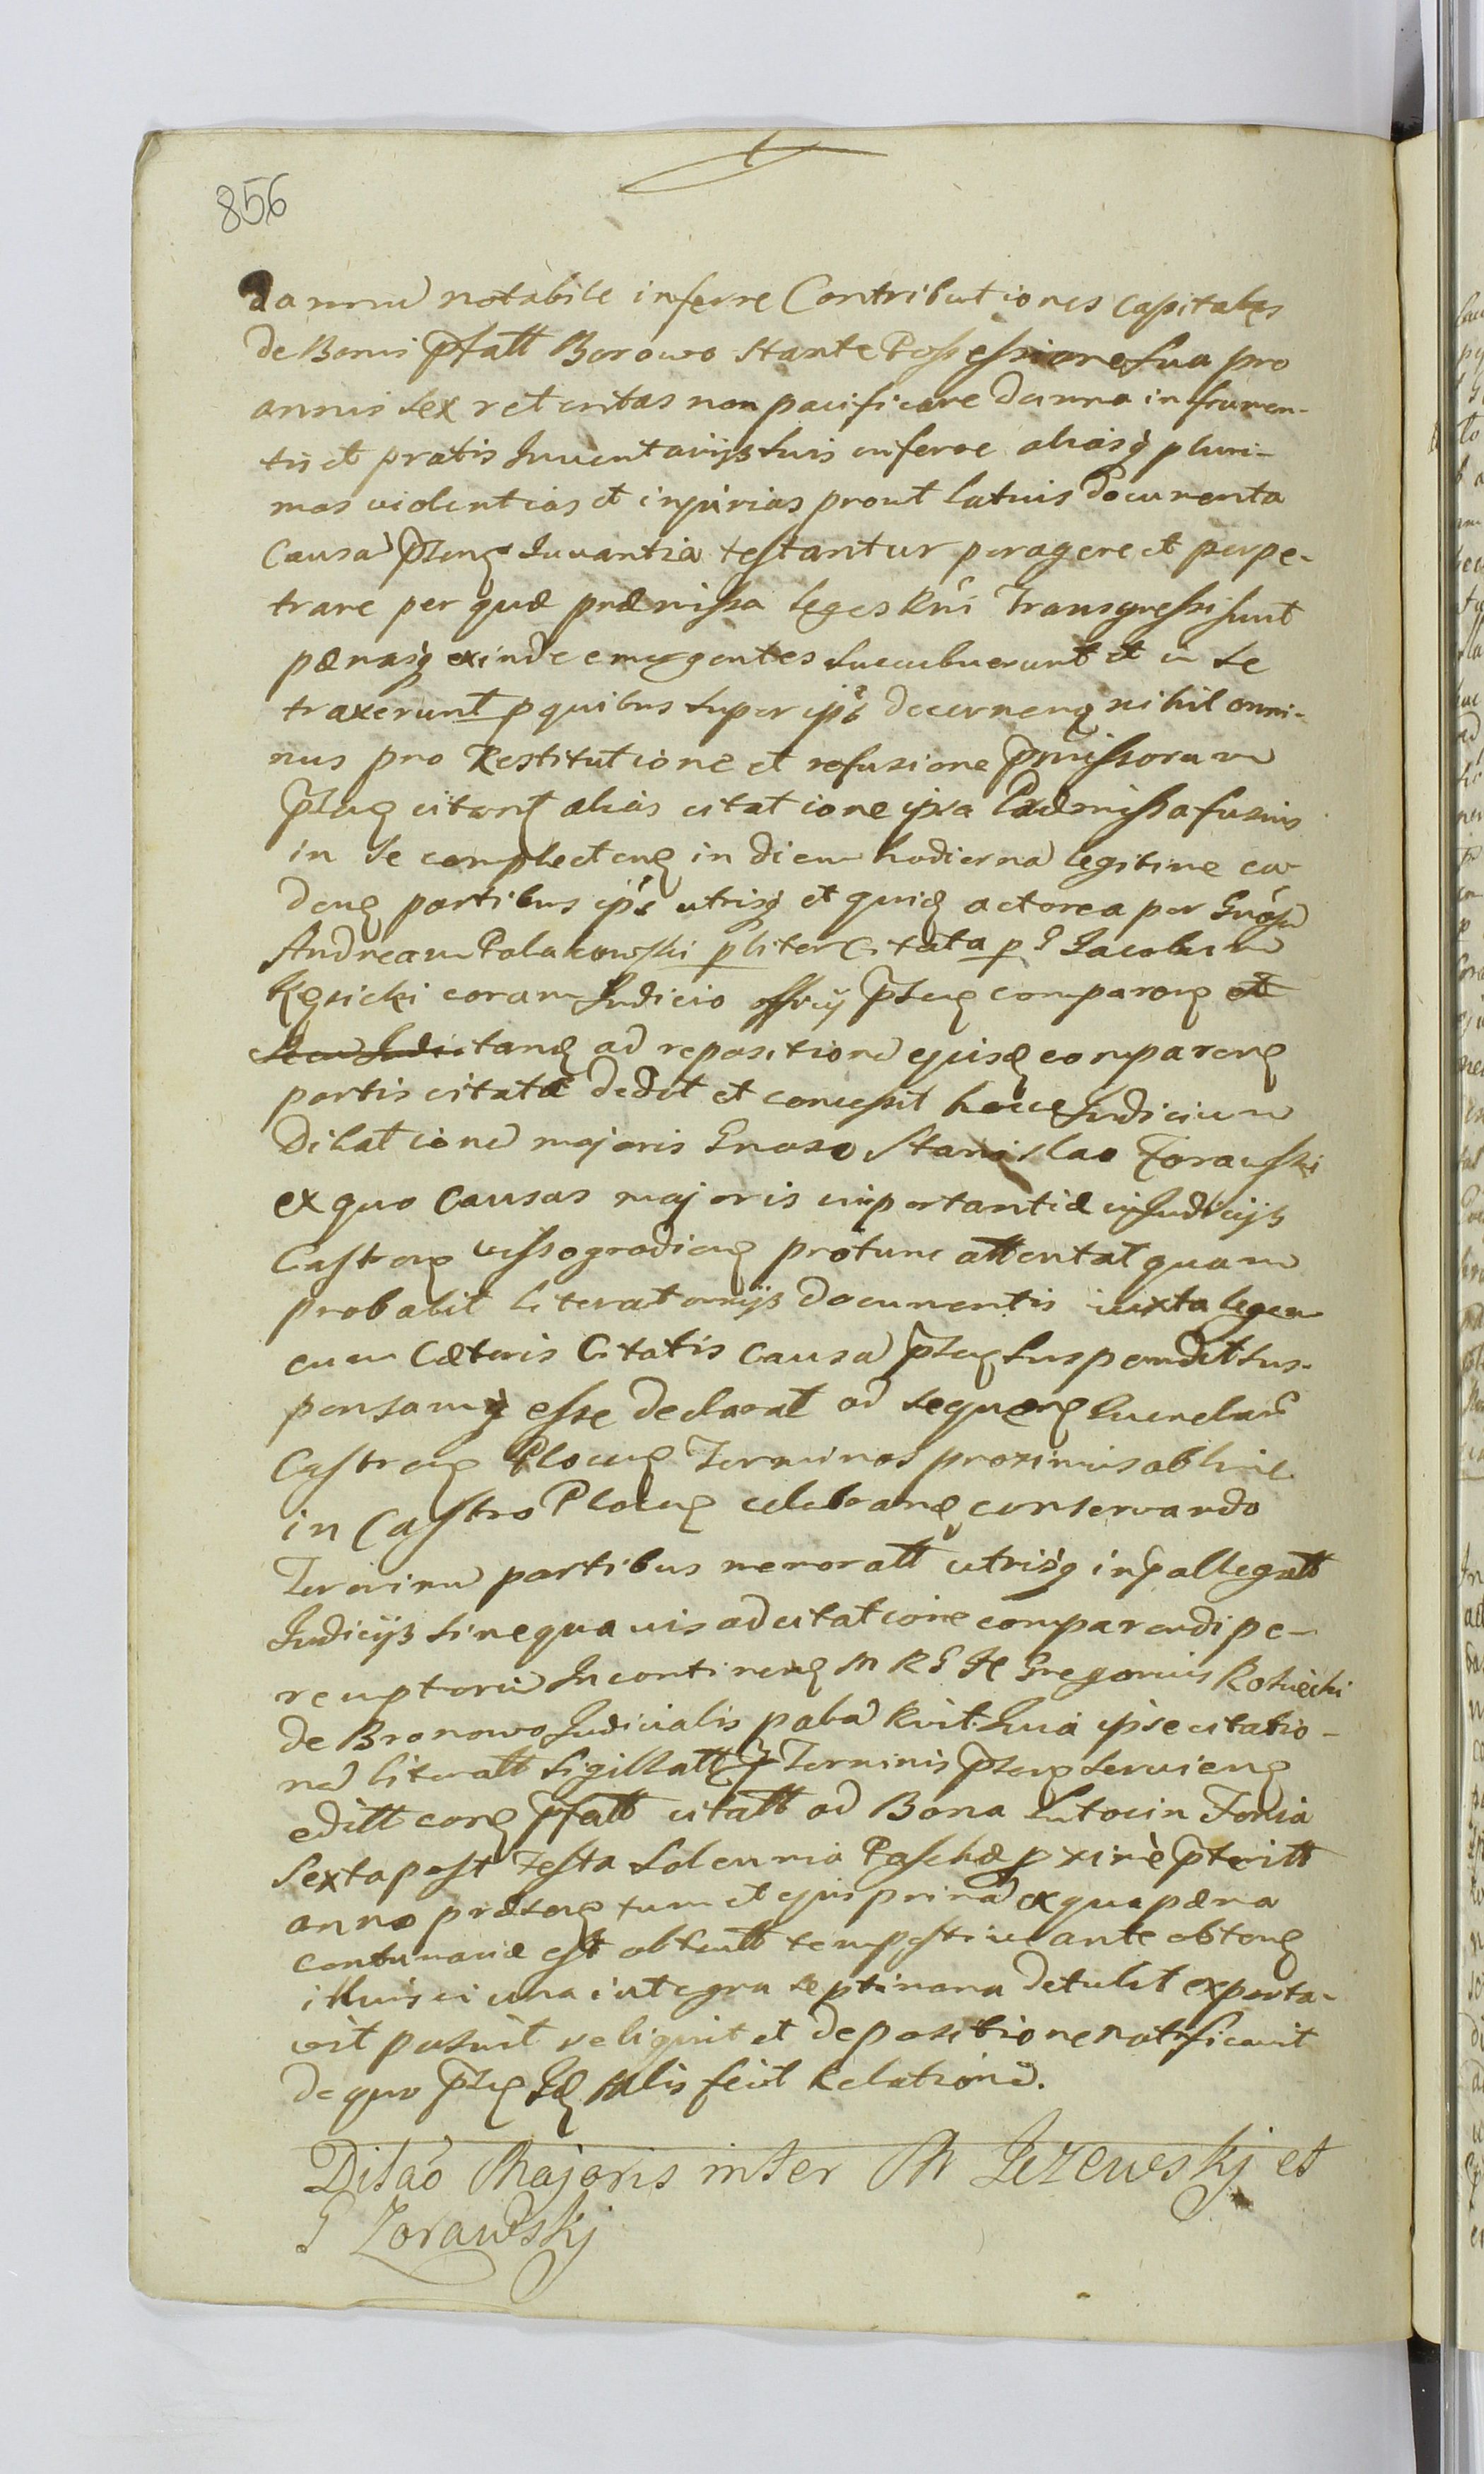 856
damnu notabile inferre Contributiones Capitales
de Bonis Pfatt Borowo stante Possessione sua pro
annis sex retentas non pacificare damna in frumen-
tis et pratis Inventarijs suis inferre aliasq pluri-
mas violentias et injurias prout latius Documenta
Causa Ptens Iuvantia testantur peragere et perpe-
trare per quæ præmissa leges Rni Transgressi sunt
pænasq exinde emergentes succubuerunt et in se
traxerunt p quibus super ips decernens nihil omni-
nus pro Restitutione et refusione Pmissorum
Ptens citant alias citatione ipsa Præmissa fusius
in se complectens in diem hodierna legitime ca-
dens partibus ips utrisq et quid actorea per Gnosu
Andream Polakowski pliter Citata p G Iacobum
Kęsicki coram Iudicio officij Ptens comparens et
tand ad repositione ejusd comparens
partis citatæ dedit et concessit hocce Iudicium
Dilatione majoris Gnoso Stanislao Zorawski
ex quo causas majoris importantiæ in Iudicijs
Castrens vissogradiens protunc attentat quam
probabit literatorijs documentis iuxta legem
cum Cæteris Citatis Causa Ptens suspendit sus-
pensamq esse declarat ad sequens Querelar
Castrens Plocens Terminos proximius ab hinc
in Castro Plocens celebrand conservando
Terminu partibus memoratt utrisq in pallegatt
Iudicijs sine quavis adcitatione comparendi pe-
remptoriu In continens M R G H Gregorius Kosucki
de Bronowo Iudicialis palam Rvit Quia ipse citatio-
ne literatt sigillatt Terminis Ptens serviens
editt cors Pfatt citatt ad Bona Lutocin Feria
sexta post Festa Solemnia Paschæ pxime Pteritt
anno præsens tum et ejus prima ex qua pæna
contumaciæ est obtentt tempestive ante obtens
illius vi una integra septimana detulit exporta-
vit posuit reliquit et depositione notificavit
de quo Ptens Id Mlis fecit Relatione.
Dilao Majoris inter M Jezewskj et
G Zorawskj